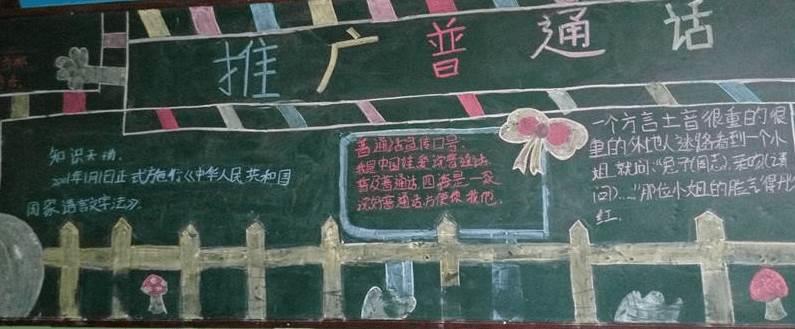 推广普通话
知识天地.
2001年1月1日正式施行《中华人民共和国
国家语言文字法》
普通话宣传口号.
我是中国娃爱说普通话
普及普通话四海是一家
说好普通话方便你我他.
一个方言土音很重的很
重的外地人迷路看到一个小
姐就问
那位小姐的脸气得
红.